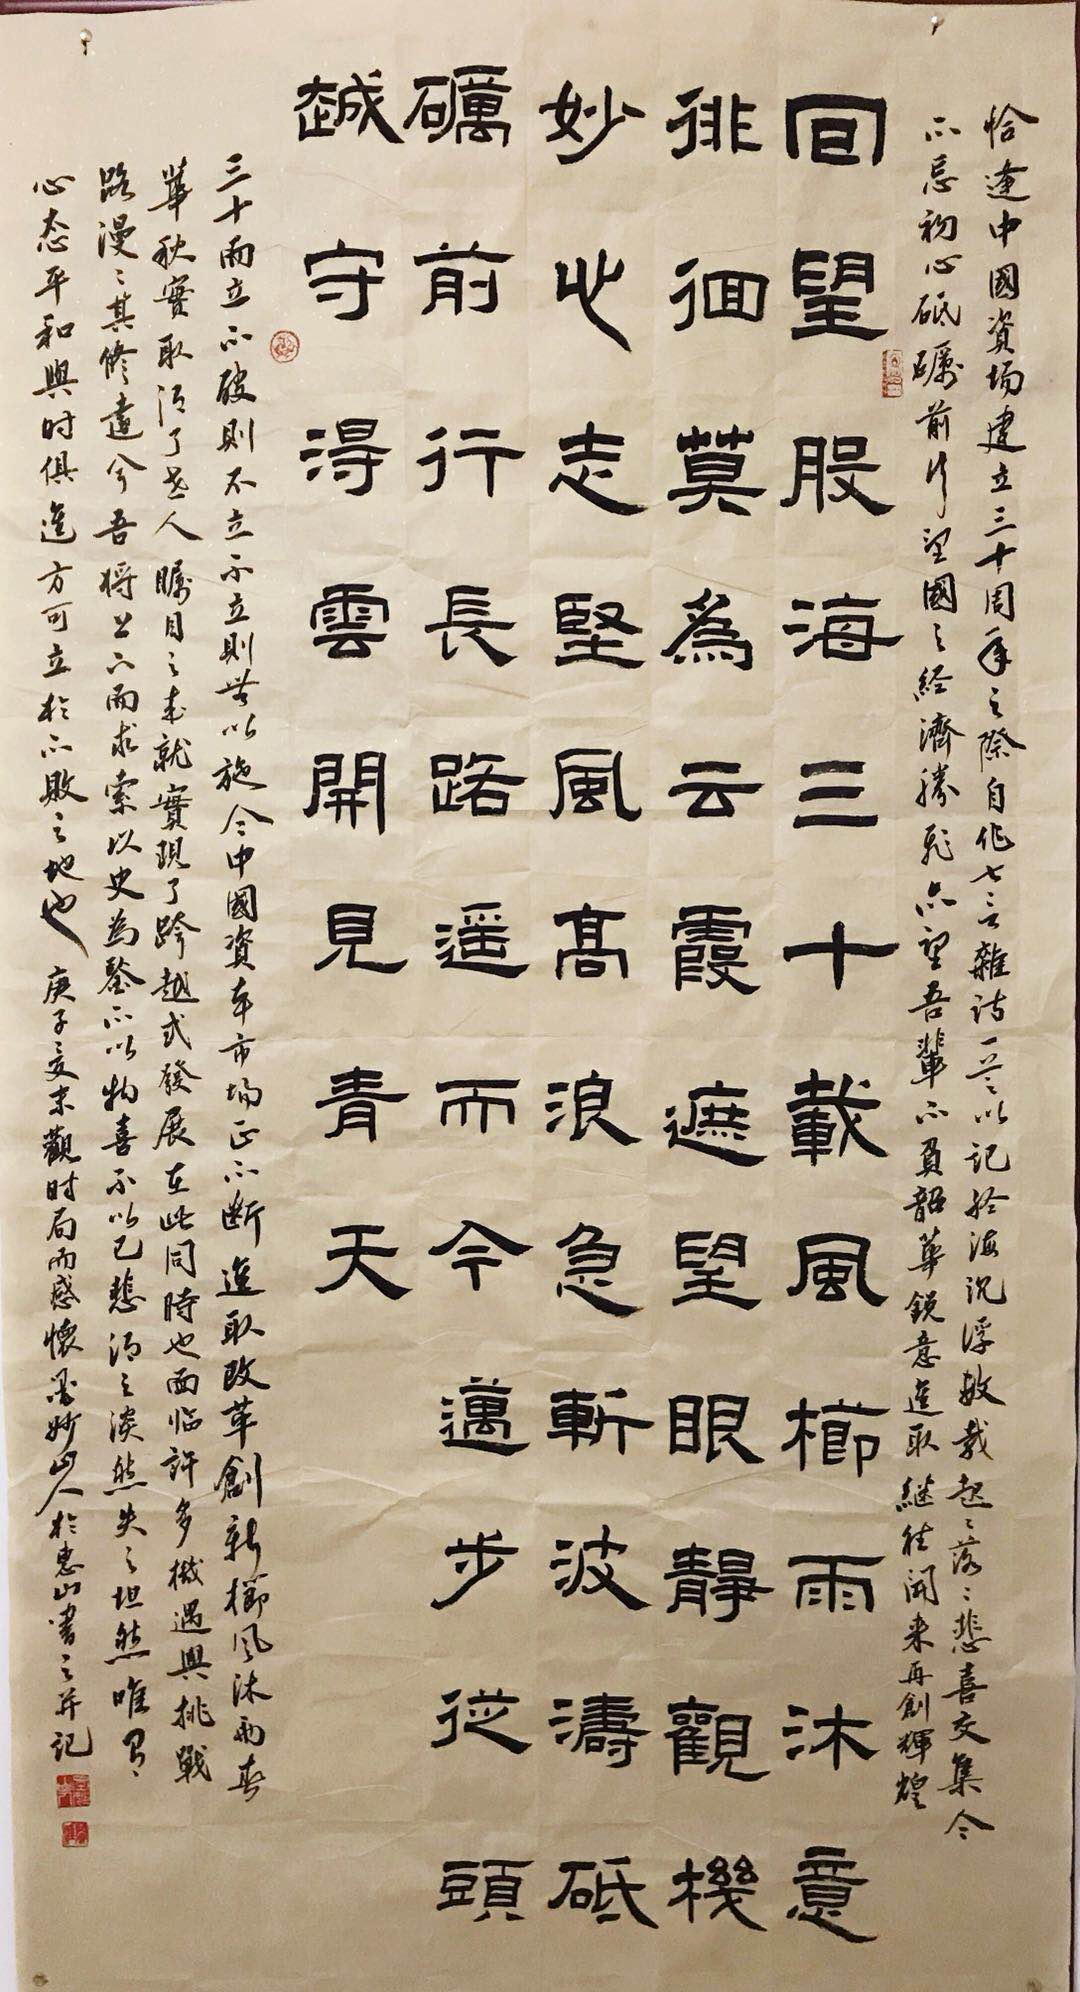 恰逢中國資场建立三十周年之際自作七言雜诗一首以記於海沉浮數载起〻落〻悲喜交集今
不忘初心砥礪前行望國之经濟騰飛亦望吾輩不負韶華銳意進取継往開来再創輝煌
回望股海三十載風櫛雨沐意
徘徊莫為云霞遮望眼靜觀機
妙心志堅風高浪急斬波濤砥
礪前行長路遥而今邁步從頭
越守得雲開見青天
三十而立不破則不立不立則無以施今中國資本市场正不断進取改革創新櫛风沐雨春
華秋實取得了世人瞩目之成就實現了跨越式發展在此同時也面临許多機遇與挑戰
路漫〻其修遠兮吾将上下而求索以史為鑒不以物喜不以己悲得之淡然失之坦然唯有
心态平和與时俱進方可立於不敗之地也 庚子夏末觀时局而感懷墨妙山人於惠山書之并記